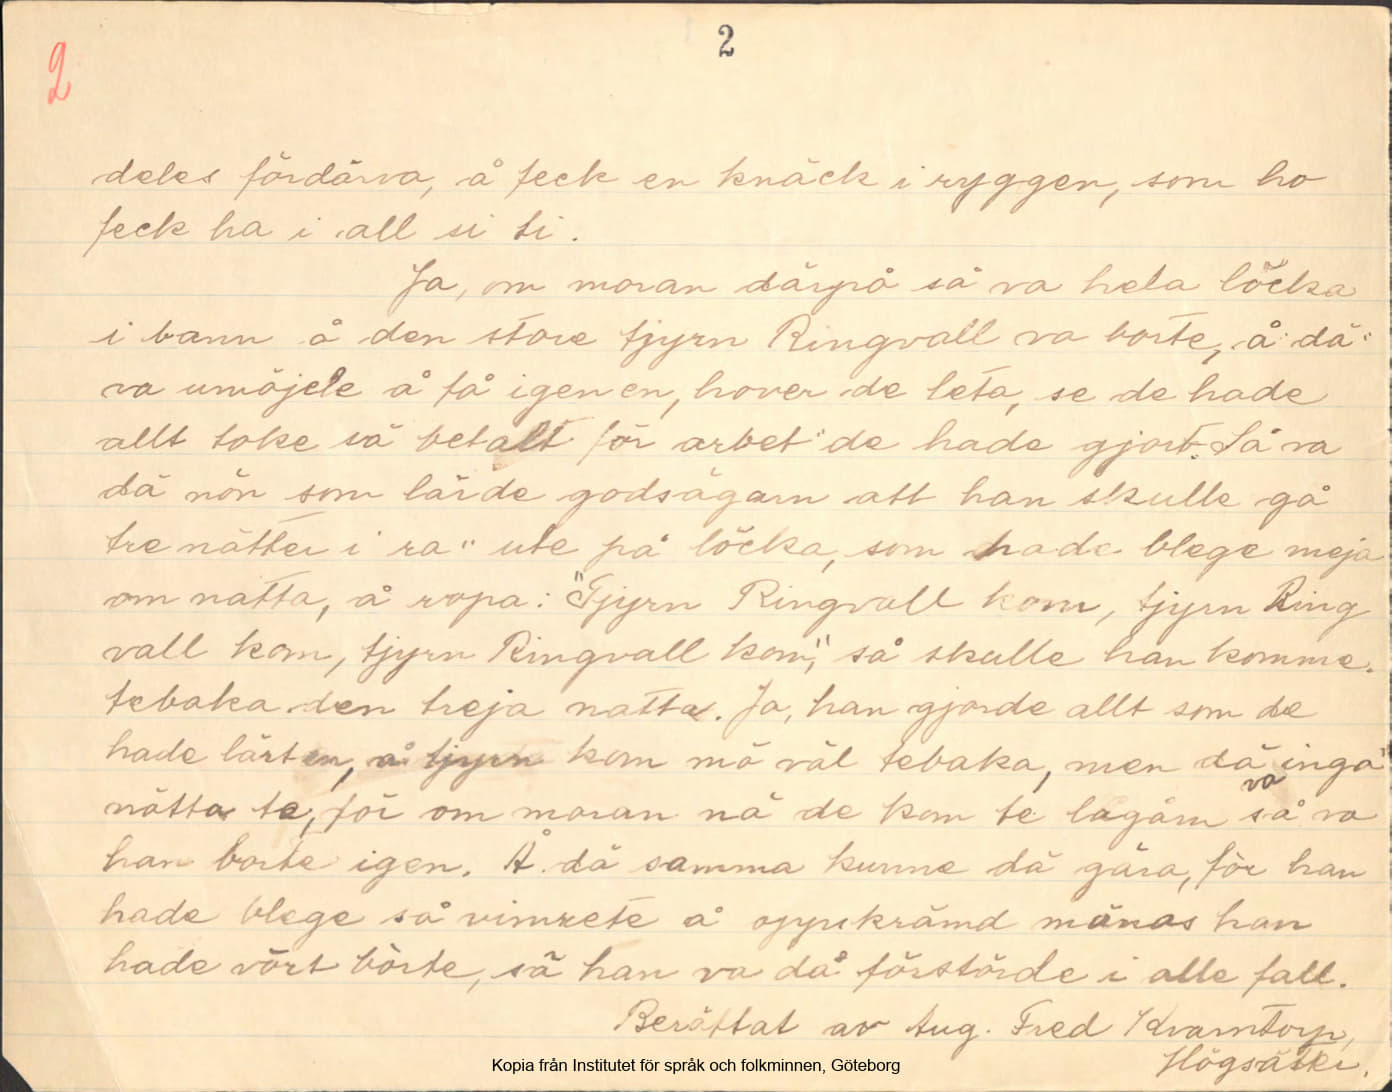 2
2
deles fördärva, å feck en knäck i ryggen, som ho
feck ha i all si ti.
Ja, om moran därpå så va hela löcka
i bann å den store tjyrn Ringvall va borte, å dä
va umöjele å få igen en, hover de leta, se de hade
allt toke sä betalt för arbet de hade gjort. Så va
dä nön som lärde godsägarn att han skulle gå
tre nätter i ra ute på löcka, som hade blege meja
om natta, å ropa: "Tjyrn Ringvall kom, tjyrn Ring
vall kom, tjyrn Ringvall kom," så skulle han komme
tebaka den treja natta. Ja, han gjorde allt som de
hade lärt en, å tjyrn kom mö väl tebaka, men dä inga
nötta te, för om moran nä de kom te lagårn så va
va
han borte igen. Å dä samma kunne dä gära, för han
hade blege så vimsete å oppskrämd mänas han
hade vört börte, sä han va då förstörde i alle fall.
Berättat av Aug. Fred Kvarntorp,
Högsäter.
Kopia från Institutet för språk och folkminnen, Göteborg